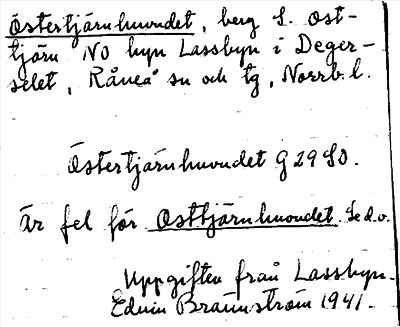 Östertjärnhuvudet, berg S. Ost-
tjärn NO byn Lassbyn i Deger-
selet, Råneå sn och tg, Norrb. l.
Östertjärnhuvudet G 29 SO.
Är fel för Osttjärnhuvudet. Se d.o.
Uppgiften från Lassbyn.
Edvin Brännström 1941.